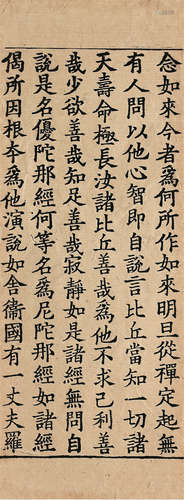 念如來今者爲何所作如來明旦從禪定起無
有人問以他心智即自說言比丘當知一切諸
天壽命極長汝諸比丘善哉爲他不求己利善
哉少欲善哉知足善哉寂靜如是諸經無問自
說是名優陀那經何等名爲尼陀那經如諸經
偈所因根本爲他演說如舍衞國有一丈夫羅